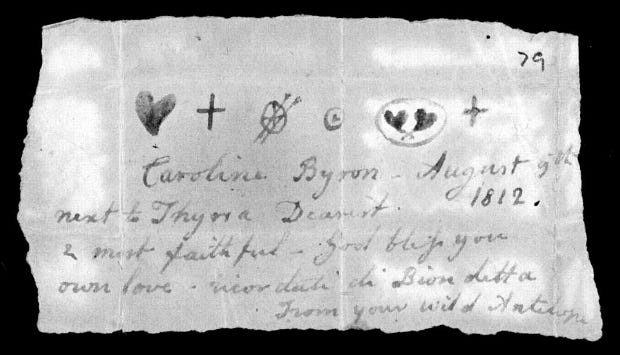 79
Caroline Byron - August 9th
1812.
next to Thyrsa Dearest
& most faithful - God bless you
own love - ricordati di Biondetta
From your wild Antelope